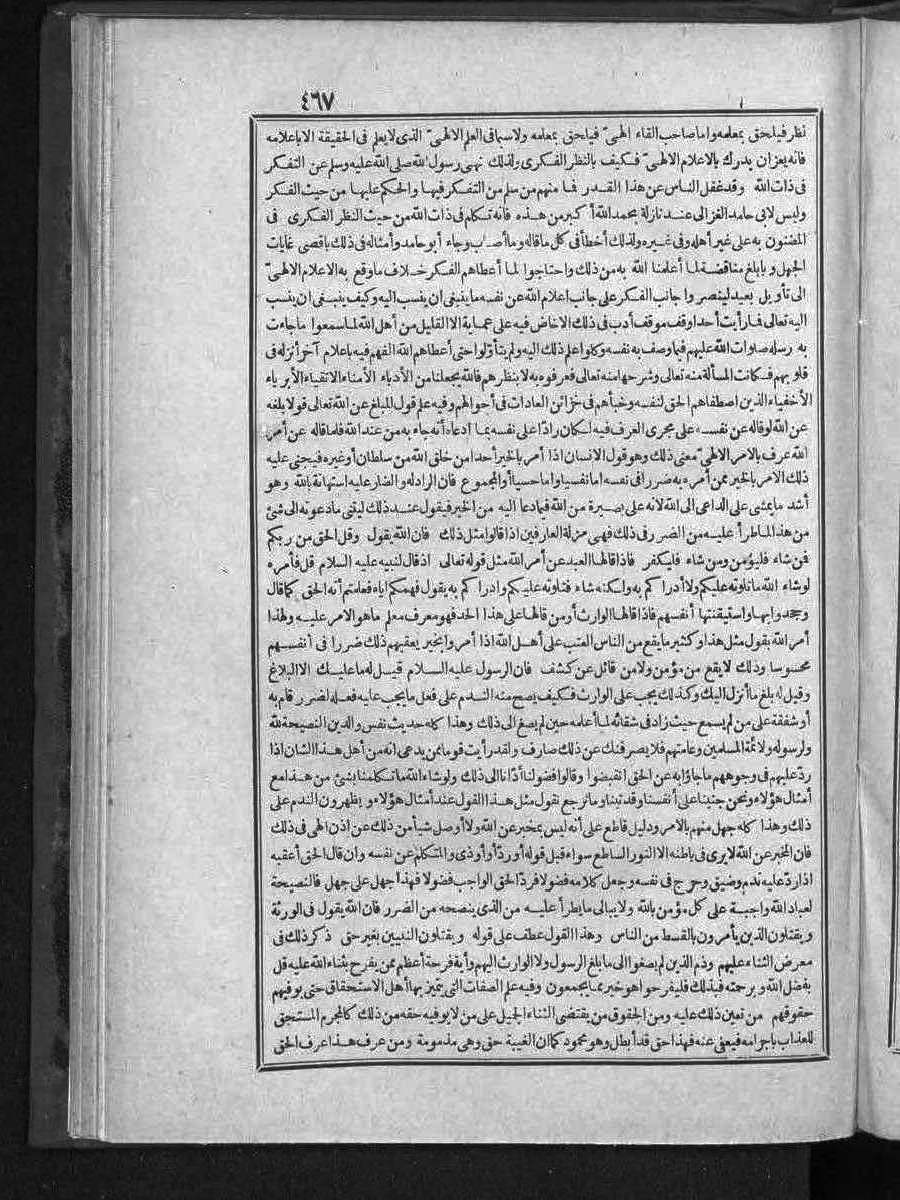 ٤٦٧
نظر فيلحق بمعلمه واما صاحب القاء الهىّ فيلحق بمعلمه ولا سيما فى العلم الالهىّ الذى لا يعلم فى الحقيقة الا باعلامه
فانه يعز ان يدرك بالاعلام الالهىّ فكيف بالنظر الفكرى ولذلك نهى رسول الله صلى الله عليه وسلم عن التفكر
فى ذات الله وقد غفل الناس عن هذا القدر فما منهم من سلم من التفكر فيها والحكم عليها من حيث الفكر
وليس لابى حامد الغزالى عند نازلة بحمد الله أكبر من هذه فانه تكلم فى ذات الله من حيث النظر الفكرى فى
المضنون به على غير أهله وفى غيره ولذلك أخطأ فى كل ما قاله وما أصاب وجاء أبو حامد وأمثاله فى ذلك باقصى غايات
الجهل وبابلغ مناقضة لما أعلمنا الله به من ذلك واحتاجوا لما أعطاهم الفكر خلاف ما وقع به الاعلام الالهىّ
الى تأويل بعيد لينصروا جانب الفكر على جانب اعلام الله عن نفسه ما ينبغى ان ينسب اليه وكيف ينبغى ان ينسب
اليه تعالى فما رأيت أحدا وقف موقف أدب فى ذلك الا خاض فيه على عماية الا القليل من أهل الله لما سمعوا ما جاءت
به رسله صلوات الله عليهم فيما وصف به نفسه وكلوا علم ذلك اليه ولم يتأوّلوا حتى أعطاهم الله الفهم فيه باعلام آخر أنزله فى
قلوبهم فكانت المسألة منه تعالى وشرحها منه تعالى فعرفوه به لا بنظرهم فالله يجعلنا من الأدباء الأمناء الاتقياء الأبرياء
الأخفياء الذين اصطفاهم الحق لنفسه وخبأهم فى خزائن العادات فى أحوالهم وفيه علم قول المبلغ عن الله تعالى قولا بلغه
عن الله لو قاله عن نفسه على مجرى العرف فيه لكان رادّا على نفسه بما ادعاه أنه جاء به من عند الله فلما قاله عن أمر
الله عرف بالامر الالهىّ معنى ذلك وهو قول الانسان اذا أمر بالخير أحدا من خلق الله من سلطان أو غيره فيجنى عليه
ذلك الامر بالخير ممن أمره به ضررا فى نفسه اما نفسيا واما حسيا أو المجموع فان الراد له والضار عليه استهانة بالله وهو
أشد ما يمشى على الداعى الى الله لانه على بصيرة من الله فيما دعا اليه من الخير فيقول عند ذلك ليتنى ما دعوته الى شئ
من هذا لما طرأ عليه من الضرر فى ذلك فهى مزلة العارفين اذا قالوا مثل ذلك فان الله يقول وقل الحق من ربكم
فمن شاء فليؤمن ومن شاء فليكفر فاذا قالها العبد عن أمر الله مثل قوله تعالى اذ قال لنبيه عليه السلام قل فأمره
لو شاء الله ما تلوته عليكم ولا أدراكم به ولكنه شاء فتلوته عليكم وادراكم به يقول فهمكم اياه فعلمتم أنه الحق كما قال
وجحدوا بها واستيقنتها أنفسهم فاذا قالها الوارث أو من قالها على هذا الحد فهو معرف معلم ما هو الامر عليه ولهذا
أمر الله بقول مثل هذا وكثير ما يقع من الناس العتب على أهل الله اذا أمروا بخير يعقبهم ذلك ضررا فى أنفسهم
محسوسا وذلك لا يقع من مؤمن ولا من قائل عن كشف فان الرسول عليه السلام قيل له ما عليك الا البلاغ
وقيل له بلغ ما أنزل اليك وكذلك يجب على الوارث فكيف يصح منه الندم على فعل ما يجب عليه فعله لضرر قام به
أو شفقة على من لم يسمع حيث زاد فى شقائه لما أعلمه حين لم يصغ الى ذلك وهذا كله حديث نفس والدين النصيحة لله
ولرسوله ولائمة المسلمين وعامتهم فلا يصرفنك عن ذلك صارف ولقد رأيت قوما ممن يدعى انه من أهل هذا الشان اذا
ردّ عليهم فى وجوههم ما جاؤا به عن الحق انقبضوا وقالوا فضولنا أدّانا الى ذلك ولو شاء الله ما تكلمنا بشئ من هذا مع
أمثال هؤلاء ونحن جنينا على أنفسنا وقد تبنا وما نرجع نقول مثل هذا القول عند أمثال هؤلاء ويظهرون الندم على
ذلك وهذا كله جهل منهم بالامر ودليل قاطع على أنه ليس بمخبر عن الله ولا أوصل شيأ من ذلك عن اذن الهى فى ذلك
فان المخبر عن الله لا يرى فى باطنه الا النور الساطع سواء قبل قوله أو ردّ أو أوذى والمتكلم عن نفسه وان قال الحق أعقبه
اذا ردّ عليه ندم وضيق وحرج فى نفسه وجعل كلامه فضولا فردّ الحق الواجب فضولا فهذا جهل على جهل فالنصيحة
لعباد الله واجبة على كل مؤمن بالله ولا يبالى ما يطرأ عليه من الذى ينصحه من الضرر فان الله يقول فى الورثة
ويقتلون الذين يأمرون بالقسط من الناس وهذا القول عطف على قوله ويقتلون النبيين بغير حق ذكر ذلك فى
معرض الثناء عليهم وذم الذين لم يصغوا الى ما بلغ الرسول ولا الوارث اليهم وأية فرحة أعظم ممن يفرح بثناء الله عليه قل
بفضل الله وبرحمته فبذلك فليفرحوا هو خير مما يجمعون وفيه علم الصفات التى يتميز بها أهل الاستحقاق حتى يوفيهم
حقوقهم من تعين ذلك عليه ومن الحقوق من يقتضى الثناء الجميل على من لا يوفيه حقه من ذلك كالمجرم المستحق
للعذاب باجرامه فيعفى عنه فهذا حق قد أبطل وهو محمود كما ان الغيبة حق وهى مذمومة ومن عرف هذا عرف الحق